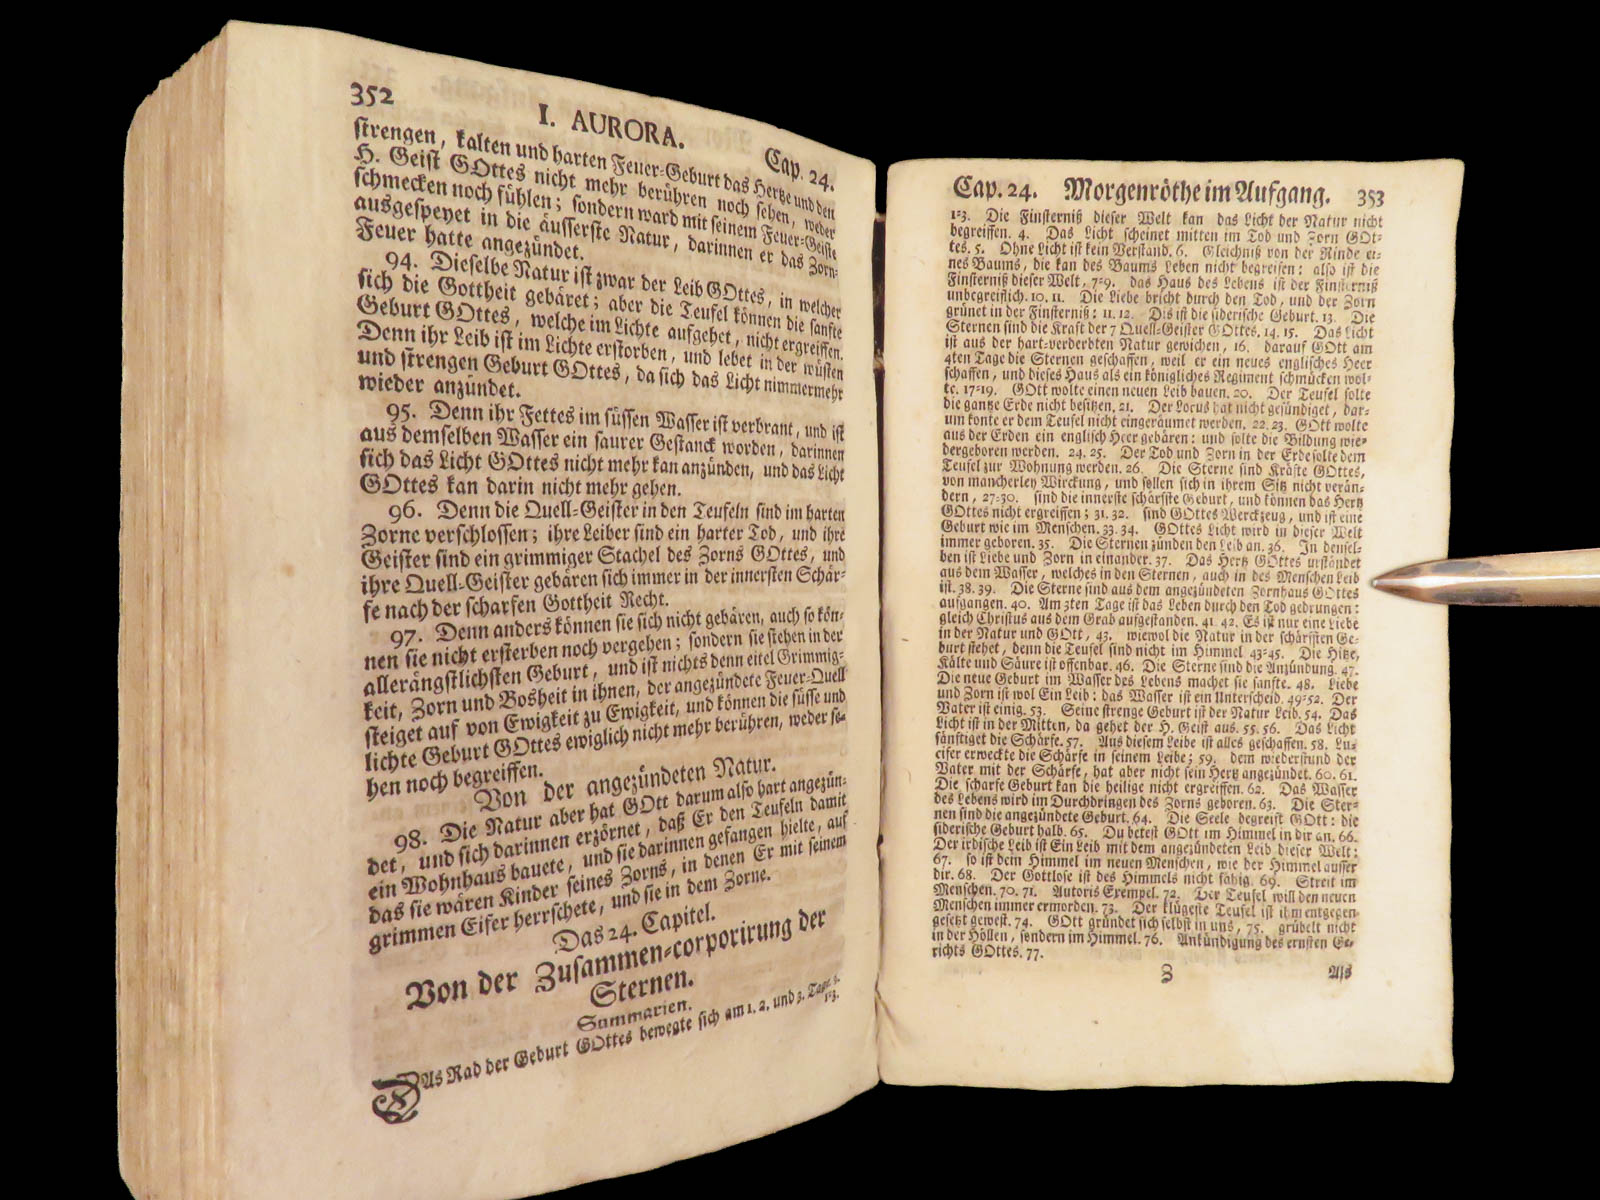 352
I. AURORA.
Cap. 24.
strengen, kalten und harten Feuer-Geburt das Hertze und den
H. Geist GOttes nicht mehr berühren noch sehen, weder
schmecken noch fühlen; sondern ward mit seinem Feuer-Geiste
ausgespeyet in die äusserste Natur, darinnen er das Zorn-
Feuer hatte angezündet.
94. Dieselbe Natur ist zwar der Leib GOttes, in welcher
sich die Gottheit gebäret; aber die Teufel können die sanfte
Geburt GOttes, welche im Lichte aufgehet, nicht ergreiffen.
Denn ihr Leib ist im Lichte erstorben, und lebet in der
und strengen Geburt GOttes, da sich das Licht nimmermehr
wieder anzündet.
95. Denn ihr Fettes im süssen Wasser ist verbrant, und ist
aus demselben Wasser ein saurer Gestanck worden, darinnen
sich das Licht GOttes nicht mehr kan anzünden, und das Licht
GOttes kan darin nicht mehr gehen.
96. Denn die Quell-Geister in den Teufeln sind im harten
Zorne verschlossen; ihre Leiber sind ein harter Tod, und ihre
Geister sind ein grimmiger Stachel des Zorns GOttes, und
ihre Quell-Geister gebären sich immer in der innersten Schär-
fe nach der scharfen Gottheit Recht.
97. Denn anders können sie sich nicht gebären, auch so kön-
nen sie nicht ersterben noch vergehen; sondern sie stehen in der
allerängstlichsten Geburt, und ist nichts denn eitel Grimmig-
keit, Zorn und Bosheit in ihnen, der angezündete Feuer-Quell
steiget auf von Ewigkeit zu Ewigkeit, und können die süsse und
lichte Geburt GOttes ewiglich nicht mehr berühren, weder se-
hen noch begreiffen.
Von der angezündeten Natur.
98. Die Natur aber hat GOtt darum also hart angezün-
det, und sich darinnen erzörnet, daß Er den Teufeln damit
ein Wohnhaus bauete, und sie darinnen gefangen hielte, auf
das sie wären Kinder seines Zorns, in denen Er mit seinem
grimmen Eifer herrschete, und sie in dem Zorne.
Das 24. Capitel.
Von der Zusammen-corporirung der
Sternen.
Summarien.
DAs Rad der Geburt GOttes bewegte sich am 1. 2. und 3. Tage. §.
1-3.
Cap. 24. Morgenröthe im Aufgang. 353
1-3. Die Finsterniß dieser Welt kan das Licht der Natur nicht
begreiffen. 4. Das Licht scheinet mitten im Tod und Zorn GOt-
tes. 5. Ohne Licht ist kein Verstand. 6. Gleichniß von der Rinde ei-
nes Baums, die kan des Baums Leben nicht begreisen: also ist die
Finsterniß dieser Welt, 7-9. das Haus des Lebens ist der Finsterniß
unbegreiflich. 10. 11. Die Liebe bricht durch den Tod, und der Zorn
grünet in der Finsterniß: 11. 12. Dis ist die siderische Geburt. 13. Die
Sternen sind die Kraft der 7 Quell-Geister GOttes. 14. 15. Das Licht
ist aus der hart-verderbten Natur gewichen, 16. darauf GOtt am
4ten Tage die Sternen geschaffen, weil er ein neues englisches Heer
schaffen, und dieses Haus als ein königliches Regiment schmücken wol-
te. 17-19. GOtt wolte einen neuen Leib bauen. 20. Der Teufel solte
die gantze Erde nicht besitzen. 21. Der Locus hat nicht gesündiget, dar-
um konte er dem Teufel nicht eingeräumet werden. 22. 23. GOtt wolte
aus der Erden ein englisch Heer gebären: und solte die Bildung wie-
dergeboren werden. 24. 25. Der Tod und Zorn in der Erde solte dem
Teufel zur Wohnung werden. 26. Die Sterne sind Kräfte GOttes,
von mancherley Wirckung, und sollen sich in ihrem Sitz nicht verän-
dern, 27-30. sind die innerste schärffste Geburt, und können das Hertz
GOttes nicht ergreiffen; 31. 32. sind GOttes Werckzeug, und ist eine
Geburt wie im Menschen. 33. 34. GOttes Licht wird in dieser Welt
immer geboren. 35. Die Sternen zünden den Leib an. 36. In densel-
ben ist Liebe und Zorn in einander. 37. Das Hertz GOttes urständet
aus dem Wasser, welches in den Sternen, auch in des Menschen Leib
ist. 38. 39. Die Sterne sind aus dem angezündeten Zornhaus GOttes
aufgangen. 40. Am 3ten Tage ist das Leben durch den Tod gedrungen:
gleich Christus aus dem Grab aufgestanden. 41. 42. Es ist nur eine Liebe
in der Natur und GOtt, 43. wiewol die Natur in der schärfften Ge-
burt stehet, denn die Teufel sind nicht im Himmel 43-45. Die Hitze,
Kälte und Säure ist offenbar. 46. Die Sterne sind die Anzündung. 47.
Die neue Geburt im Wasser des Lebens machet sie sanfte. 48. Liebe
und Zorn ist wol Ein Leib: das Wasser ist ein Unterscheid. 49-52. Der
Vater ist einig. 53. Seine strenge Geburt ist der Natur Leib. 54. Das
Licht ist in der Mitten, da gehet der H. Geist aus. 55. 56. Das Licht
sänftiget die Schärfe. 57. Aus diesem Leibe ist alles geschaffen. 58. Lu-
cifer erweckte die Schärfe in seinem Leibe; 59. dem wiederstund der
Vater mit der Schärfe, hat aber nicht sein Hertz angezündet. 60. 61.
Die scharfe Geburt kan die heilige nicht ergreiffen. 62. Das Wasser
des Lebens wird im Durchdringen des Zorns geboren. 63. Die Ster-
nen sind die angezündete Geburt. 64. Die Seele begreift GOtt: die
siderische Geburt halb. 65. Du betest GOtt im Himmel in dir an. 66.
Der irdische Leib ist Ein Leib mit dem angezündeten Leib dieser Welt:
67. so ist dein Himmel im neuen Menschen, wie der Himmel ausser
dir. 68. Der Gottlose ist des Himmels nicht fähig. 69. Streit im
Menschen. 70. 71. Autoris Exempel. 72. Der Teufel will den neuen
Menschen immer ermorden. 73. Der klügeste Teufel ist ihm entgegen-
gesetzt gewest. 74. GOtt gründet sich selbst in uns, 75. grübelt nicht
in der Höllen, sondern im Himmel. 76. Ankündigung des ernsten Ge-
richts GOttes. 77.
Z
Als